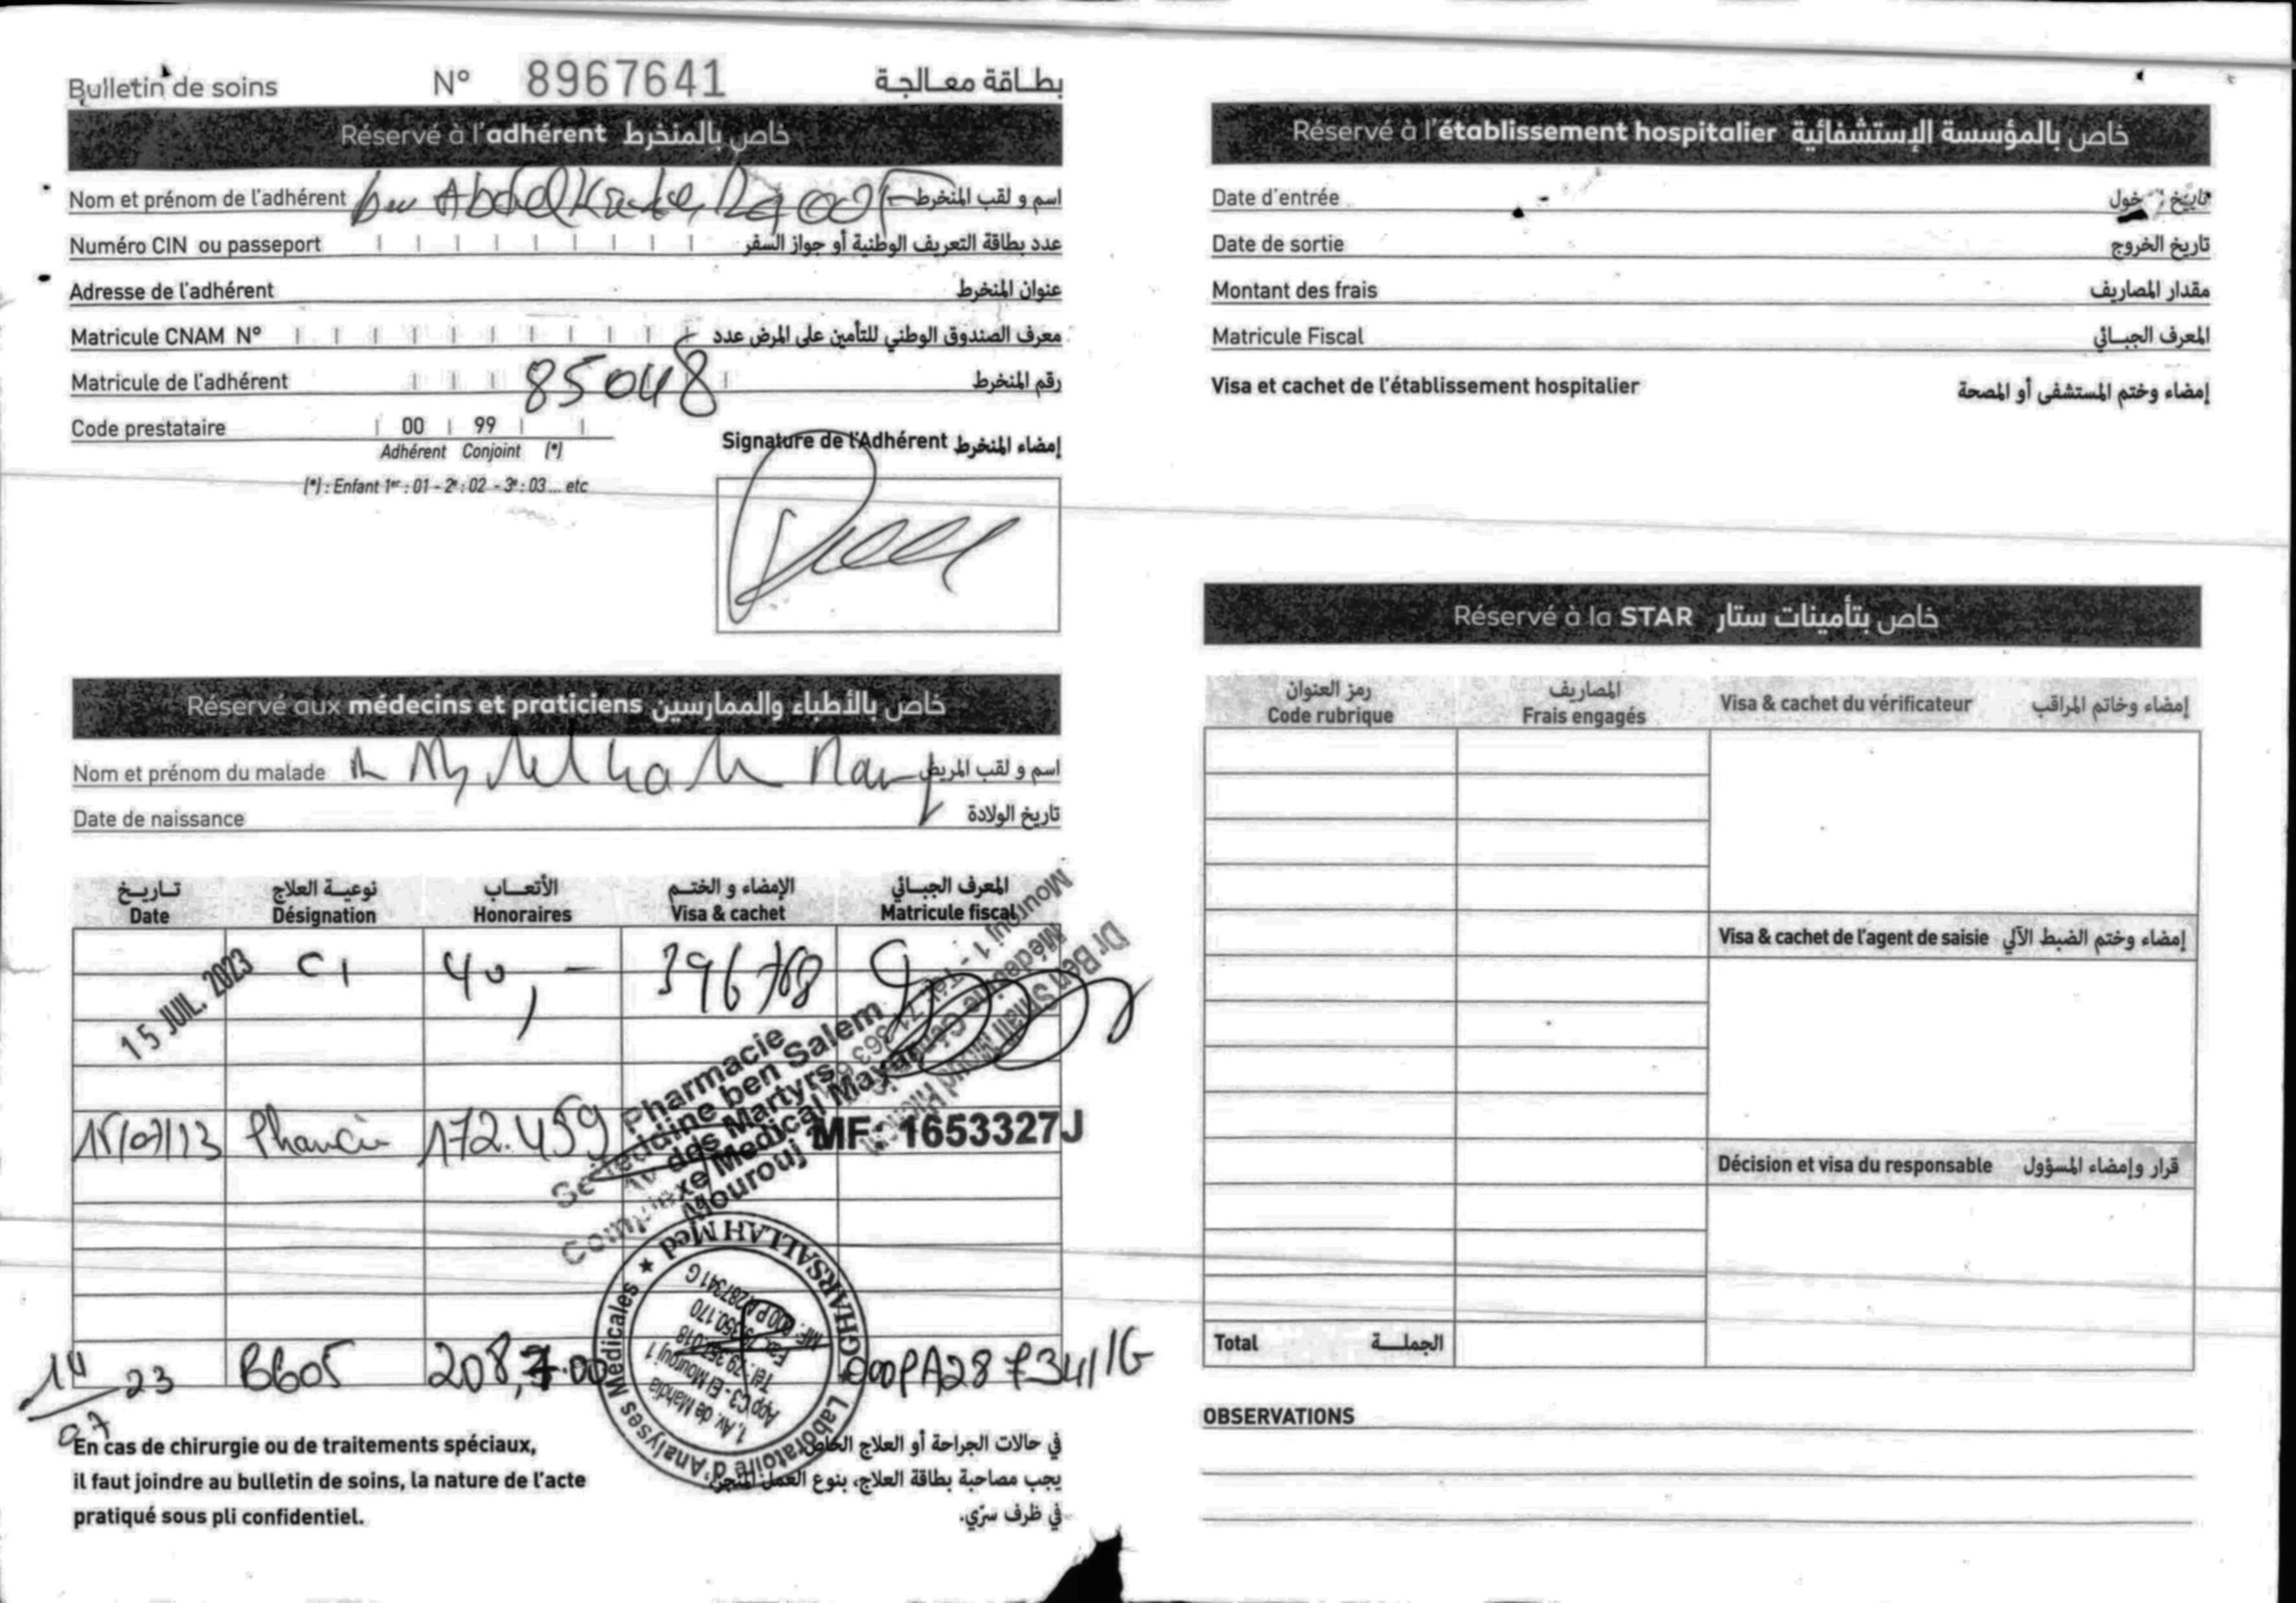 Bulletin de soins N° 8967641 بطاقة معالجة
Réservé à l'adhérent خاص بالمنخرط
Nom et prénom de l'adhérent ben Abdelkader اسم و لقب المنخرط
Numéro CIN ou passeport عدد بطاقة التعريف الوطنية أو جواز السفر
Adresse de l'adhérent عنوان المنخرط
Matricule CNAM N° معرف الصندوق الوطني للتأمين على المرض عدد
Matricule de l'adhérent 85048 رقم المنخرط
Code prestataire 00 99
Adhérent Conjoint (*)
(*) : Enfant 1er : 01 - 2e : 02 - 3e : 03 ... etc
Signature de l'Adhérent إمضاء المنخرط
Réservé aux médecins et praticiens خاص بالأطباء والممارسين
Nom et prénom du malade اسم و لقب المريض
Date de naissance تاريخ الولادة
تاريخ نوعية العلاج الأتعاب الإمضاء و الختم المعرف الجبائي
Date Désignation Honoraires Visa & cachet Matricule fiscal
15 JUIL. 2023 C1 40,- 396768
Dr Ben Smail
Mourouj 1
Pharmacie
Seifeddine ben Salem
des Martyrs
Complexe Medical Mayar
Mourouj
15/07/23 172.459 MF: 1653327J
14/07 23 B605 208,700 000PA287341/G
Laboratoire d'Analyses Médicales ★ GHARSALLAH Med ★
1, Av. de Mahdia
App C3 - El Mourouj 1
En cas de chirurgie ou de traitements spéciaux,
il faut joindre au bulletin de soins, la nature de l'acte
pratiqué sous pli confidentiel.
في حالات الجراحة أو العلاج الخاص
يجب مصاحبة بطاقة العلاج، بنوع العمل المنجز،
في ظرف سرّي.
Réservé à l'établissement hospitalier خاص بالمؤسسة الإستشفائية
Date d'entrée تاريخ الدخول
Date de sortie تاريخ الخروج
Montant des frais مقدار المصاريف
Matricule Fiscal المعرف الجبائي
Visa et cachet de l'établissement hospitalier إمضاء وختم المستشفى أو المصحة
Réservé à la STAR خاص بتأمينات ستار
رمز العنوان المصاريف
Code rubrique Frais engagés Visa & cachet du vérificateur إمضاء وخاتم المراقب
Visa & cachet de l'agent de saisie إمضاء وختم الضبط الآلي
Décision et visa du responsable قرار وإمضاء المسؤول
Total الجملة
OBSERVATIONS